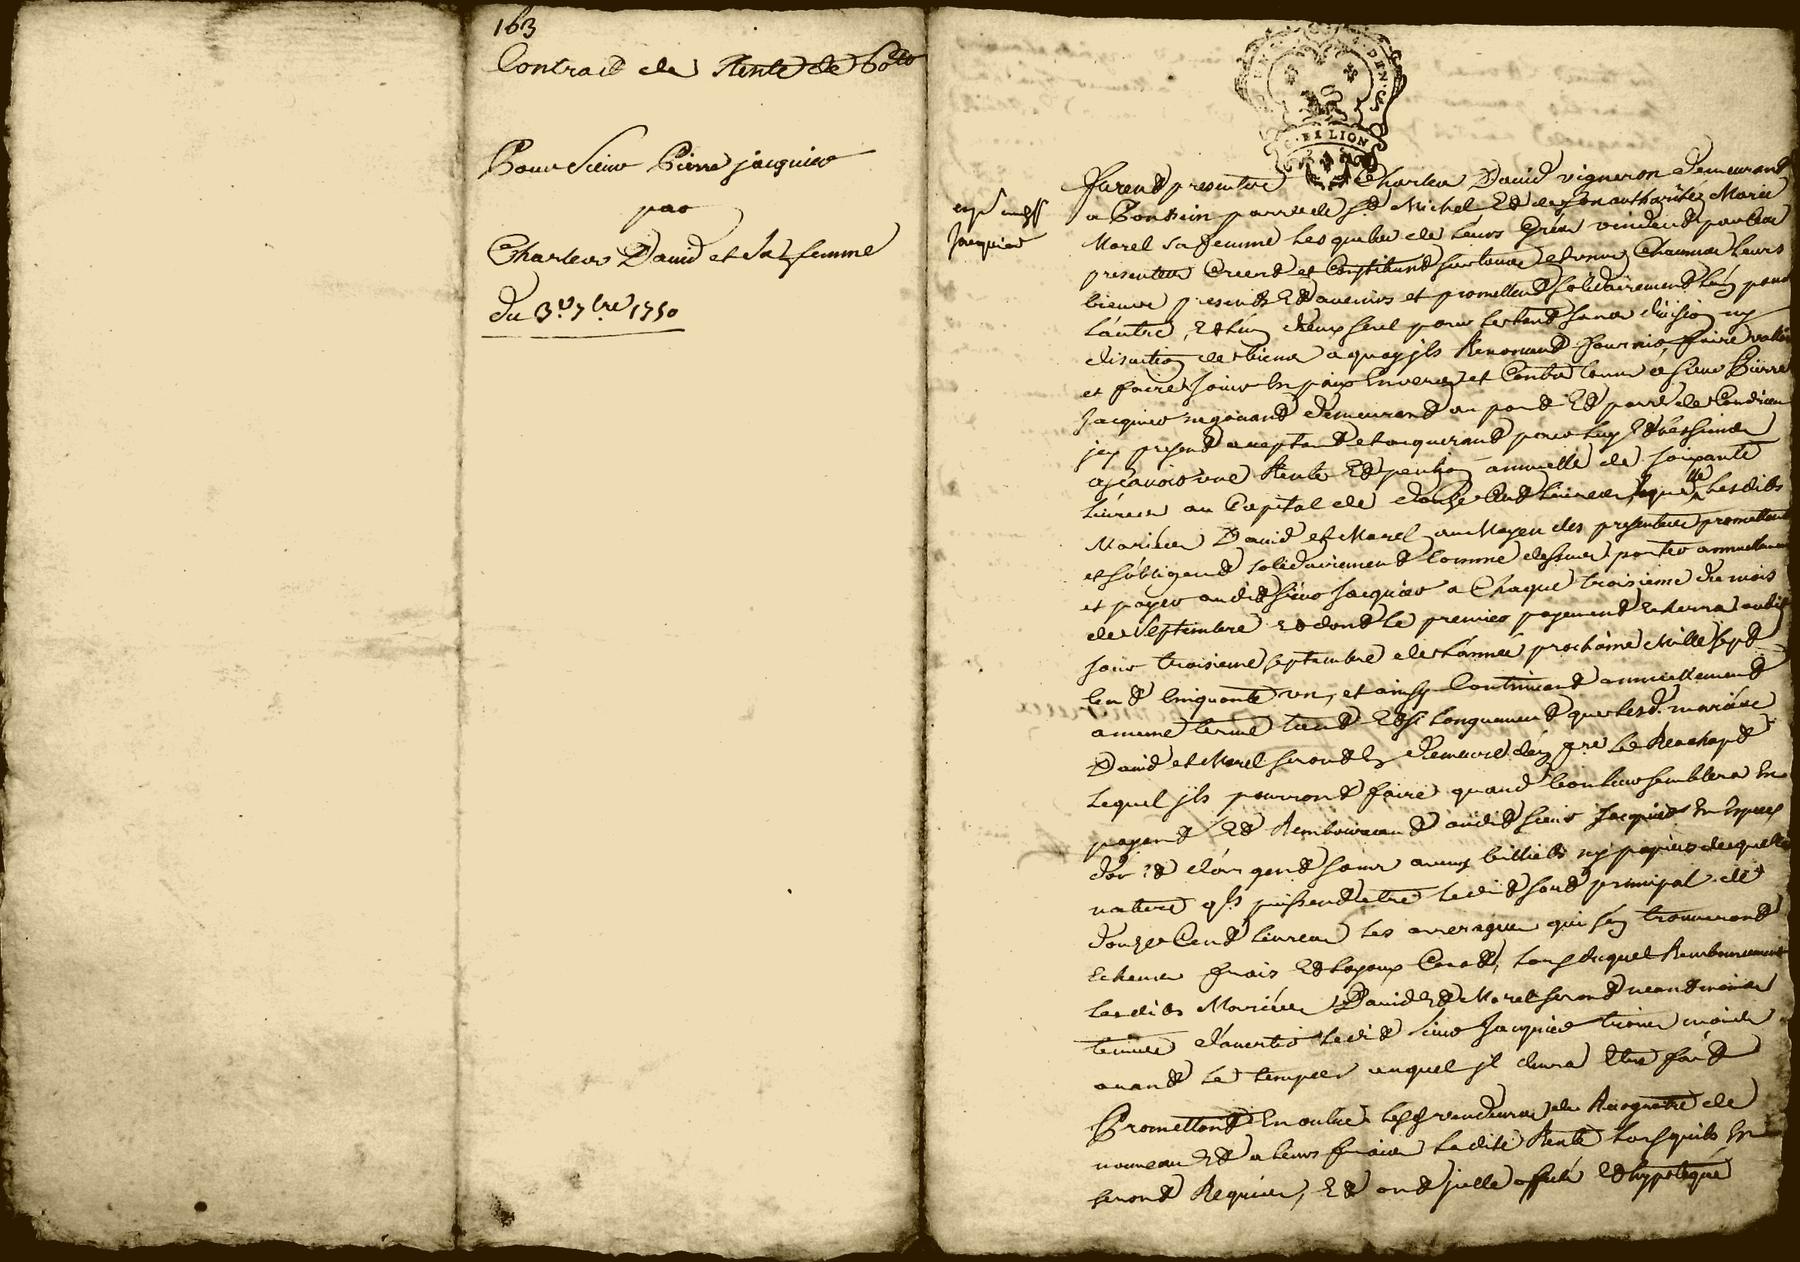 163
Contract de Rente de 60lt
Pour Sieur Pierre jacquier
par
Charlers David et sa femme
du 3e 7bre 1750
GEN. DE LION
exp en
Jacquier
furent presents Charles David vigneron demeurant
a Condrieu parroisse St Michel Et de son authorité Marie
Morel sa femme Lesquels de leurs Gréz vendent par Ces
presentes Creent et Constituent sur tous et uns Chacuns Leurs
biens presents Et avenirs et promettent solidairement L'un pour
L'autre, Et L'un d'eux seul pour Le tout sans division ny
discution de biens a quoy jls Renoncent fournir faire valloir
et faire Jouir En paix Envers et Contre tous a sieur Pierre
Jacquier negociant demeurant au port Et parr. de Condrieu
jcy present acceptant et acquerant pour luy Et les siens
asçavoir une Rente Et pention annuelle de soixante
Livres au Capital de douze Cent Livres, laquelle Lesdits
Mariées David et Morel au Moyen des presentes promettent
et s'obligent solidairement Comme dessus porter annuellement
et payer audit sieur Jacquier a Chaque troisieme du mois
de Septembre Et dont Le premier payement Echerra audit
jour troisieme septembre de L'année prochaine Mille sept
Cent Cinquante un, et ainsy Continuant annuellement
a meme terme tant Et si Longuement que Lesd. mariées
David et Morel seront En demeure d'en fre Le Reachapt
Lequel jls pourront faire quand bon leur semblera En
payant Et Remboursant audit sieur Jacquier En Especes
d'or Et d'argent sans aucuns billiets ny papiers de quelle
nature qls puissent etre Ledit sort principal de
douze Cent Livres Les arrerages qui s'en trouveront
Echeus frais Et Loyaux Couts, Lors duquel Remboursement
Lesdits Mariées David Et Morel seront neantmoins
tenues d'avertir Ledit sieur Jacquier trois mois
avant Le temps auquel jl devra Etre fait
Promettant En outre Lesd. vendeurs de Recognoitre de
nouveau Et a Leurs frais Ladite Rente Lorsquils En
seront Requis, Et ont jcelle affecté Et hypotequé